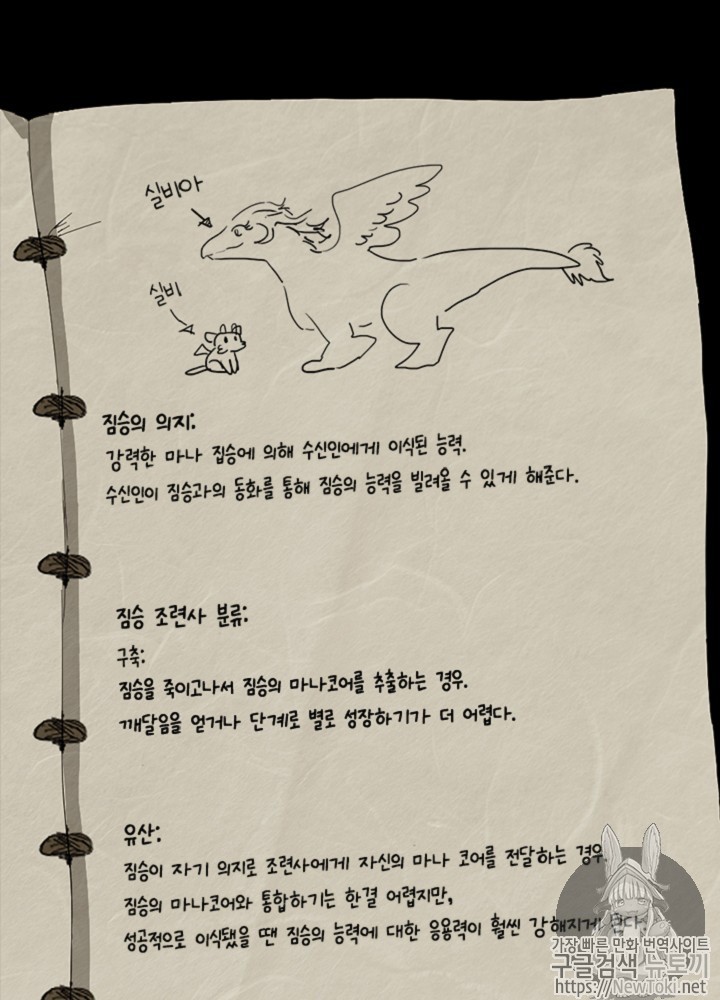 실비아
실비
짐승의 의지:
강력한 마나 짐승에 의해 수신인에게 이식된 능력.
수신인이 짐승과의 동화를 통해 짐승의 능력을 빌려올 수 있게 해준다.
짐승 조련사 분류:
구축:
짐승을 죽이고나서 짐승의 마나코어를 추출하는 경우.
깨달음을 얻거나 단계로 별로 성장하기가 더 어렵다.
유산:
짐승이 자기 의지로 조련사에게 자신의 마나 코어를 전달하는 경우.
짐승의 마나코어와 통합하기는 한결 어렵지만,
성공적으로 이식됐을 땐 짐승의 능력에 대한 응용력이 훨씬 강해지게 된다.
가장 빠른 만화 번역사이트
구글검색 뉴토끼
https://NewToki.net